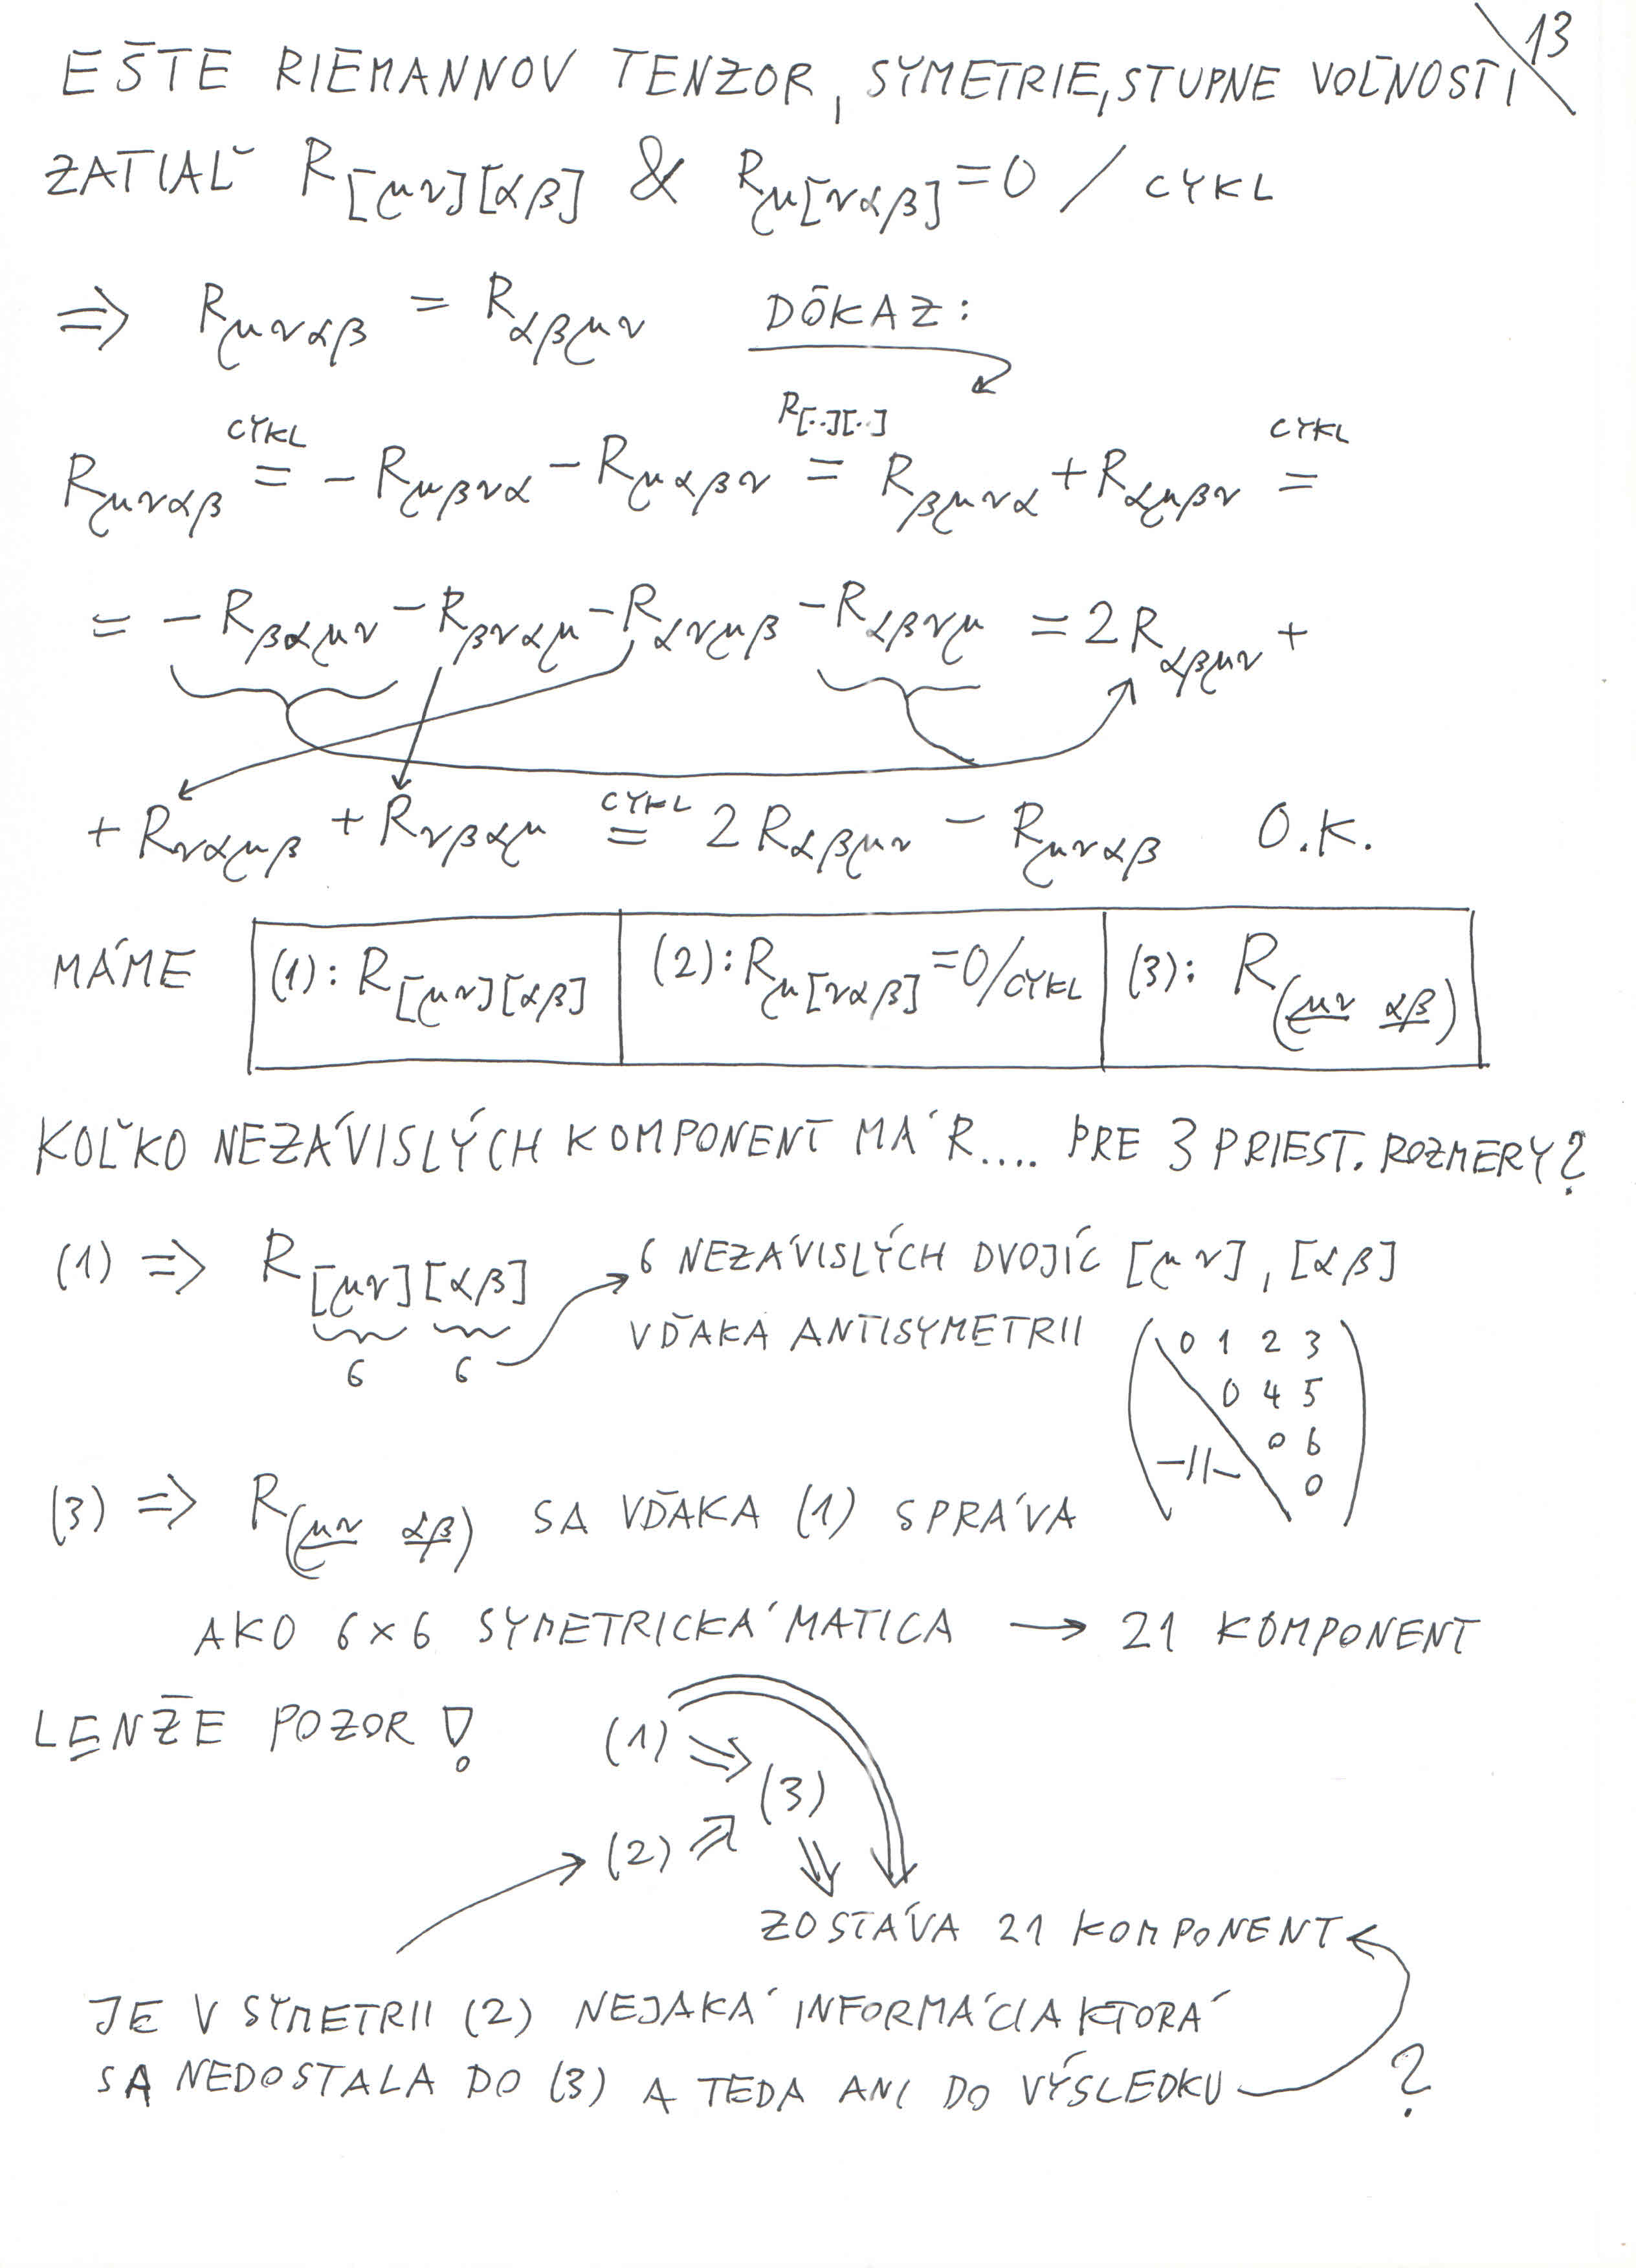 13
EŠTE RIEMANNOV TENZOR, SYMETRIE, STUPNE VOĽNOSTI
ZATIAĽ R[μν][αβ] & Rμ[ναβ]=0 / CYKL
⇒ Rμναβ = Rαβμν DÔKAZ:
Rμναβ =(CYKL) -Rμβνα -Rμαβν =(R[..][..]) Rβμνα +Rαμβν =(CYKL)
= -Rβαμν -Rβναμ -Rανμβ -Rαβνμ = 2Rαβμν +
+Rναμβ +Rνβαμ =(CYKL) 2Rαβμν - Rμναβ O.K.
MÁME (1): R[μν][αβ] (2): Rμ[ναβ]=0/CYKL (3): R(μν αβ)
KOĽKO NEZÁVISLÝCH KOMPONENT MÁ R.... PRE 3 PRIEST. ROZMERY?
(1) ⇒ R[μν][αβ] 6 NEZÁVISLÝCH DVOJÍC [μν], [αβ]
6 6 VĎAKA ANTISYMETRII
0 1 2 3
0 4 5
0 6
-||- 0
(3) ⇒ R(μν αβ) SA VĎAKA (1) SPRÁVA
AKO 6×6 SYMETRICKÁ MATICA → 21 KOMPONENT
LENŽE POZOR!
(1) ⇒ (3)
(2) ⇒
ZOSTÁVA 21 KOMPONENT
JE V SYMETRII (2) NEJAKÁ INFORMÁCIA KTORÁ
SA NEDOSTALA DO (3) A TEDA ANI DO VÝSLEDKU ?